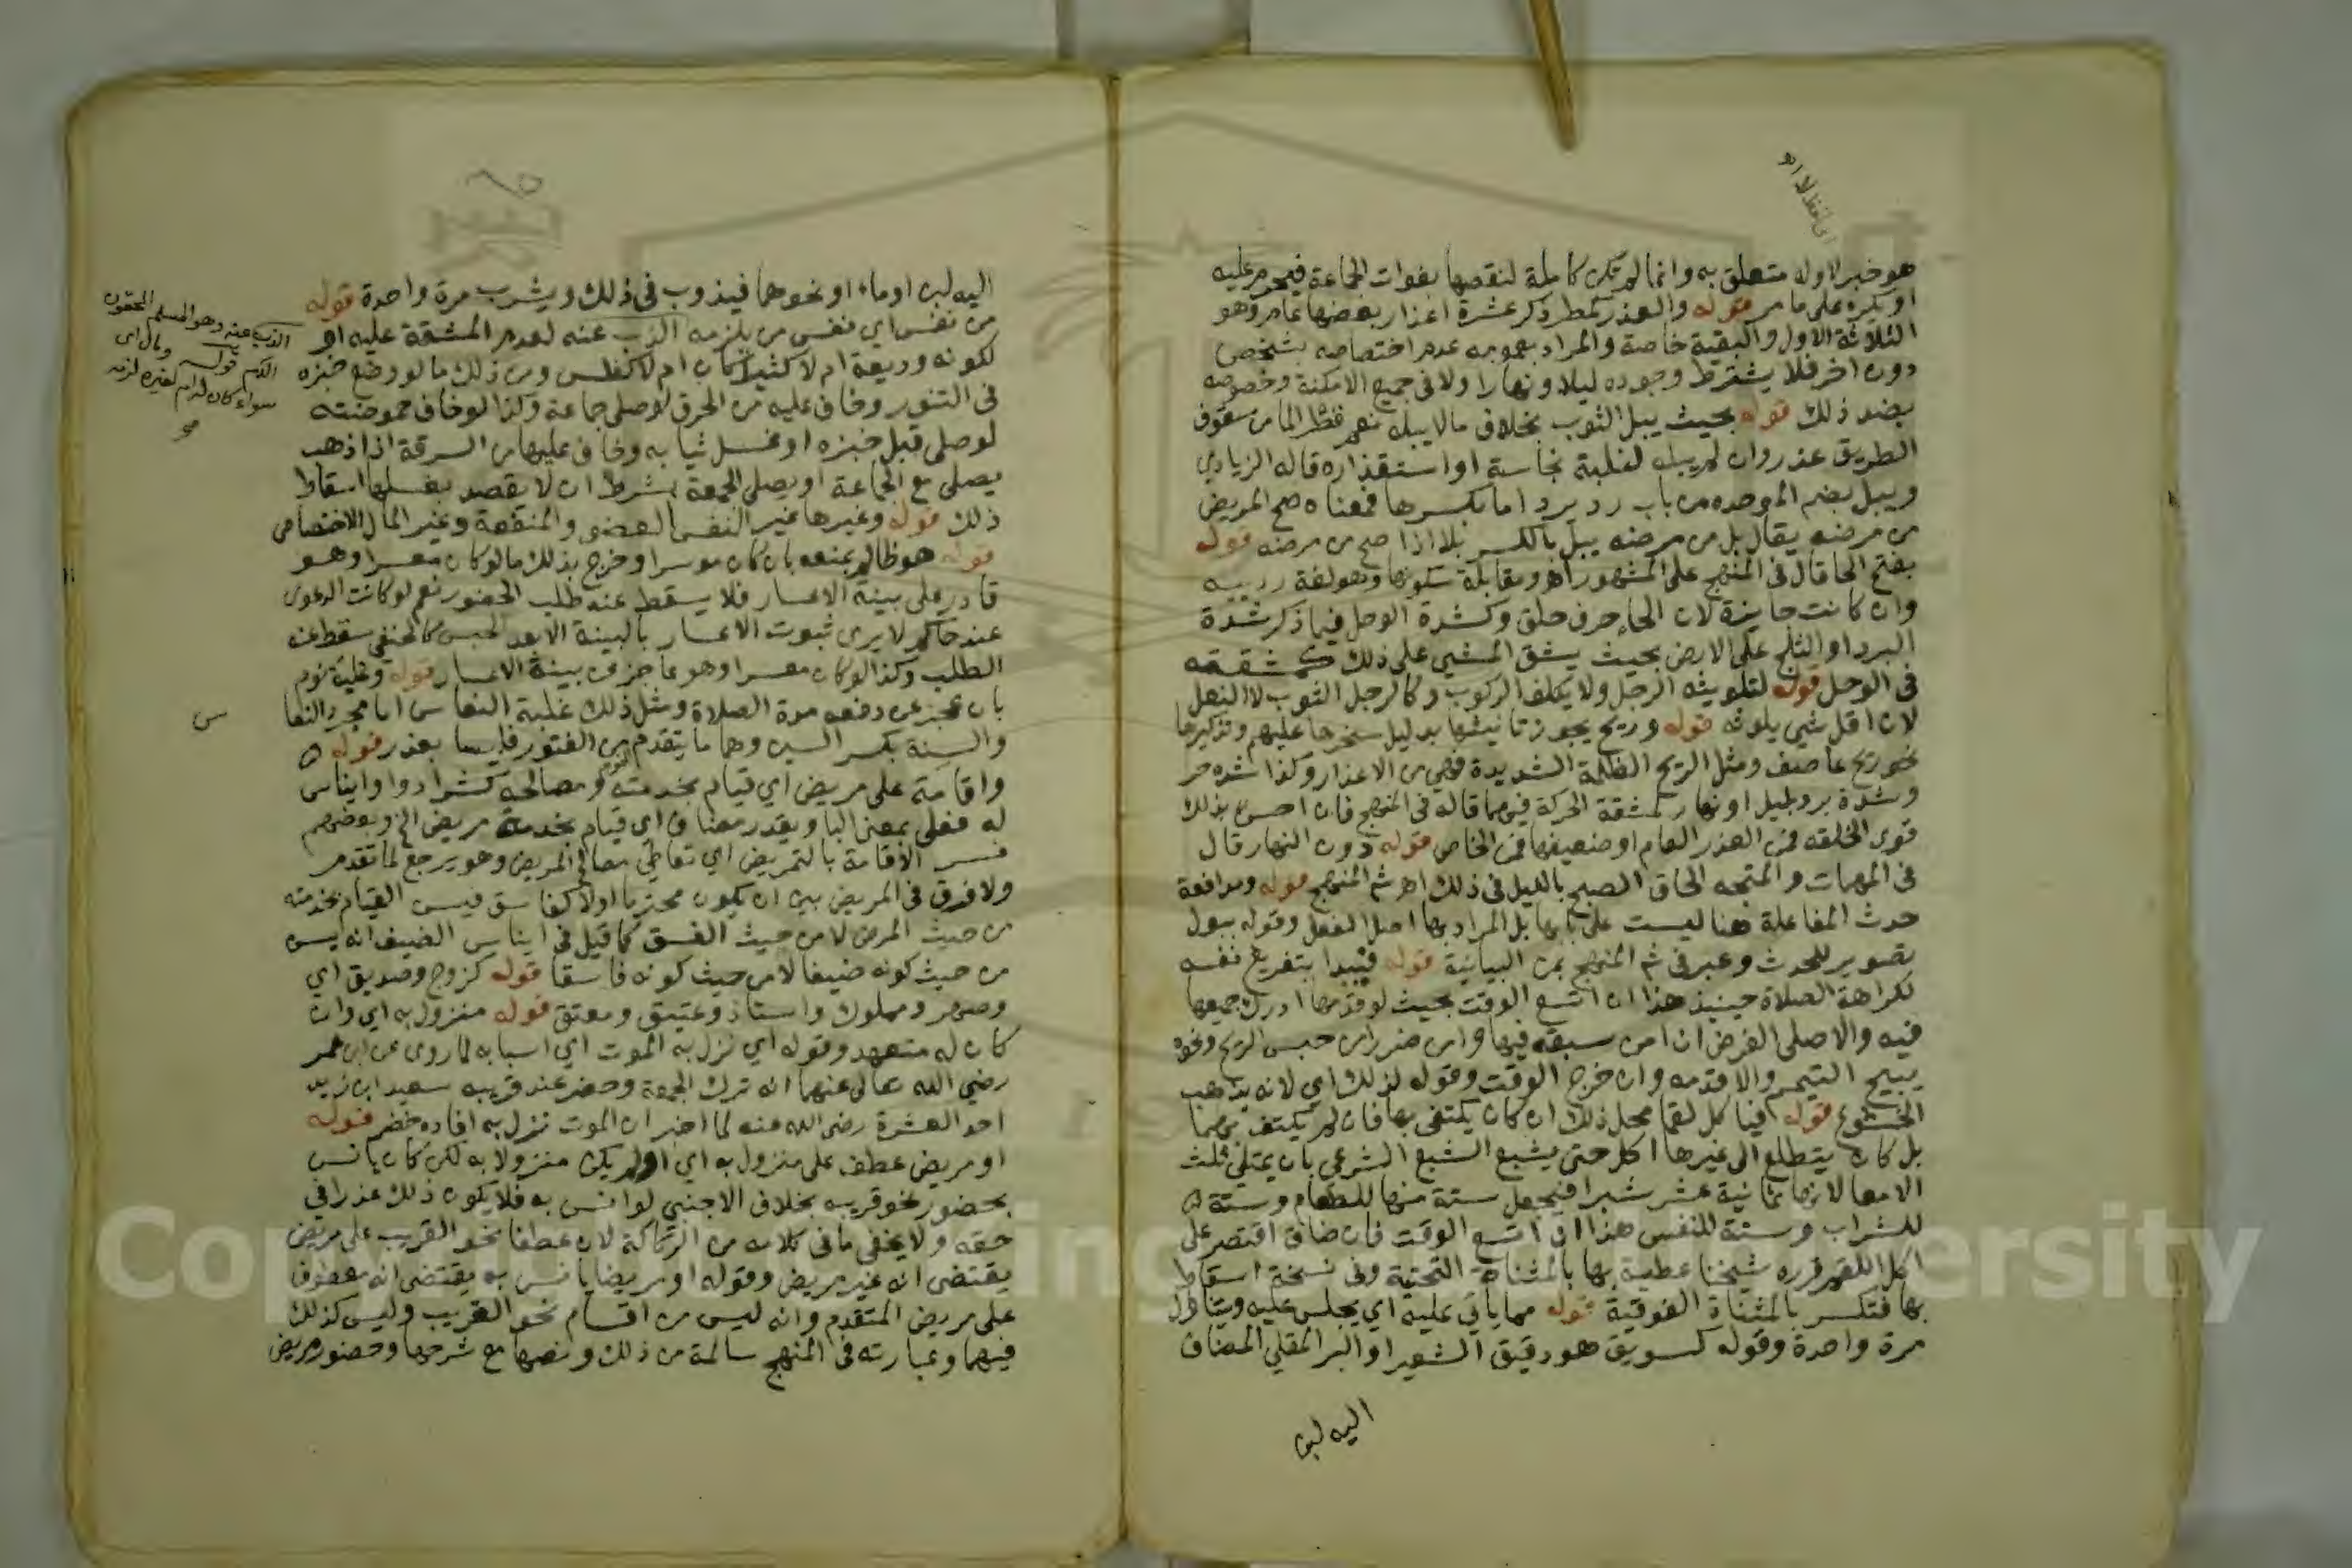 اي لفظ لا اه
هو خبر لا وله متعلق به وانما لم تكن كاملة لنقصها بفوات الجماعة فيحرم عليه
او يكره على ما مر قوله والعذر كمطر ذكر عشرة اعذار بعضها عام وهو
الثلاثة الاول والبقية خاصة والمراد بعمومه عدم اختصاصه بشخص
دون اخر فلا يشترط وجوده ليلا ونهارا ولا في جميع الامكنة وخصوصه
بضد ذلك قوله بحيث يبل الثوب بخلاف ما لا يبله نعم قطر الما من سقوف
الطريق عذر وان لم يبل لغلبة نجاسة او استقذاره قاله الزيادي
ويبل بضم الموحده من باب رد يرد اما بكسرها فمعناه صح المريض
من مرضه يقال بل من مرضه يبل بالكسر بلا اذا صح من مرضه قوله
بفتح الحا قال في المنهج على المشهور اه ومقابله سكونها وهو لغة رديئة
وان كانت جايزة لان الحاء حرف حلق وكشدة الوحل فيما ذكر شدة
البرد او الثلج على الارض بحيث يشق المشي على ذلك كمشقته
في الوحل قوله لتلويثه الرجل ولا يكلف الركوب وكالرجل الثوب لا النعل
لان اقل شي يلوثه قوله وريح يجوز تانيثها بدليل سخرها عليهم وتذكيرها
نحو ريح عاصف ومثل الريح الظلمة الشديدة فهي من الاعذار وكذا شدة حر
وشدة برد بليل او نهار كمشقة الحركة فيهما قاله في المنهج فان احس بذلك
قوى الخلقه فمن العذر العام او ضعيفها فمن الخاص قوله دون النهار قال
في المهمات والمتجه الحاق الصبح بالليل في ذلك اه شم المنهج قوله ومدافعة
حدث المفاعلة هنا ليست على بابها بل المراد بها اصل الفعل وقوله ببول
تصوير للحدث وعبر في شم المنهج بمن البيانية قوله فيبدا بتفريغ نفسه
لكراهة الصلاة حينيذ هذا ان اتسع الوقت بحيث لو قدمها ادرك جميعها
فيه والا صلى الفرض ان امن سبقه فيها وامن ضررا من حبس الريح ونحوه
يبيح التيمم والا قدمه وان خرج الوقت وقوله لذلك اي لانه يذهب
الخشوع قوله فياكل لقما محل ذلك ان كان يكتفى بها فان لم يكتف بها
بل كان يتطلع الى غيرها اكل حتى يشبع الشبع الشرعي بان يمتلي ثلث
الامعا لانها ثمانية عشر شبرا فيجعل ستة منها للطعام وستة
للشراب وستة للنفس هذا ان اتسع الوقت فان ضاق اقتصر على
اكل اللقم قرره شيخنا عطية بها بالمثناة التحتية وفي نسخة اسقاط
بها فتكسر بالمثناة الفوقية قوله مما ياتي عليه اي يجلس عليه ويتناول
مرة واحدة وقوله كسويق هو دقيق الشعير او البر المقلي المضاف
اليه لبن
اليه لبن او ماء او نحوهما فيذوب في ذلك ويشرب مرة واحدة قوله
من نفس اي نفس من يلزمه الذب عنه لعدم المشقة عليه او
لكونه وديعة ام لا كثيرا كان ام لا كفلس ومن ذلك ما لو وضع خبزه
في التنور وخاف عليه من الحرق لو صلى جماعة وكذا لو خاف حموضته
لو صلى قبل خبزه او غسل ثيابه وخاف عليها من السرقة اذا ذهب
يصلي مع الجماعة او يصلي الجمعة بشرط ان لا يقصد بغسلها اسقاط
ذلك قوله وغيرها غير النفس العضو والمنفعة وغير المال الاختصاص
قوله هو ظالم بمنعه بان كان موسرا وخرج بذلك ما لو كان معسرا وهو
قادر على بينة الاعسار فلا يسقط عنه طلب الحضور نعم لو كانت الدعوى
عند حاكم لا يرى ثبوت الاعسار بالبينة الا بعد الحبس كالحنفي سقط عنه
الطلب وكذا لو كان معسرا وهو عاجز عن بينة الاعسار قوله وغلبة نوم
بان عجز عن دفعه مدة الصلاة ومثل ذلك غلبة النعاس اما مجرد النعاس
والسنة بكسر السين وهما ما يتقدم النوم من الفتور فليسا بعذر قوله
واقامة على مريض اي قيام بخدمته ومصالحه كشرا دوا وايناس
له فعلى بمعنى البا ويقدر مضاف اي قيام بخدمة مريض الخ وبعضهم
فسر الاقامة بالتمريض اي تعاطي مصالح المريض وهو يرجع لما تقدم
ولا فرق في المريض بين ان يكون محترما او لا كفاسق فيسن القيام بخدمته
من حيث المرض لا من حيث الفسق كما قيل في ايناس الضيف انه يسن
من حيث كونه ضيفا لا من حيث كونه فاسقا قوله كزوج وصديق اي
وصهر ومملوك واستاذ وعتيق ومعتق قوله منزول به اي وان
كان له متعهد وقوله اي نزل به الموت اي اسبابه لما روى عن ابن عمر
رضي الله تعالى عنهما انه ترك الجمعة وحضر عند قريبه سعيد ابن زيد
احد العشرة رضي الله عنه لما اخبر ان الموت نزل به افاده خضر قوله
او مريض عطف على منزول به اي او لم يكن منزولا به لكن كان يانس
بحضور نحو قريبه بخلاف الاجنبي لو انس به فلا يكون ذلك عذرا في
حقه ولا يخفى ما في كلامه من الركاكة لان عطفا نحو القريب على مريض
يقتضي انه غير مريض وقوله او مريضا يانس به يقتضي انه معطوف
على مريض المتقدم وانه ليس من اقسام نحو القريب وليس كذلك
فيهما وعبارته في المنهج سالمة من ذلك ونصها مع شرحها وحضور مريض
الذب عنه وهو المسلم المحقون
الدم قوله ومال اي
سواء كان له ام لغيره لزمه
صح
س
Copyright King University